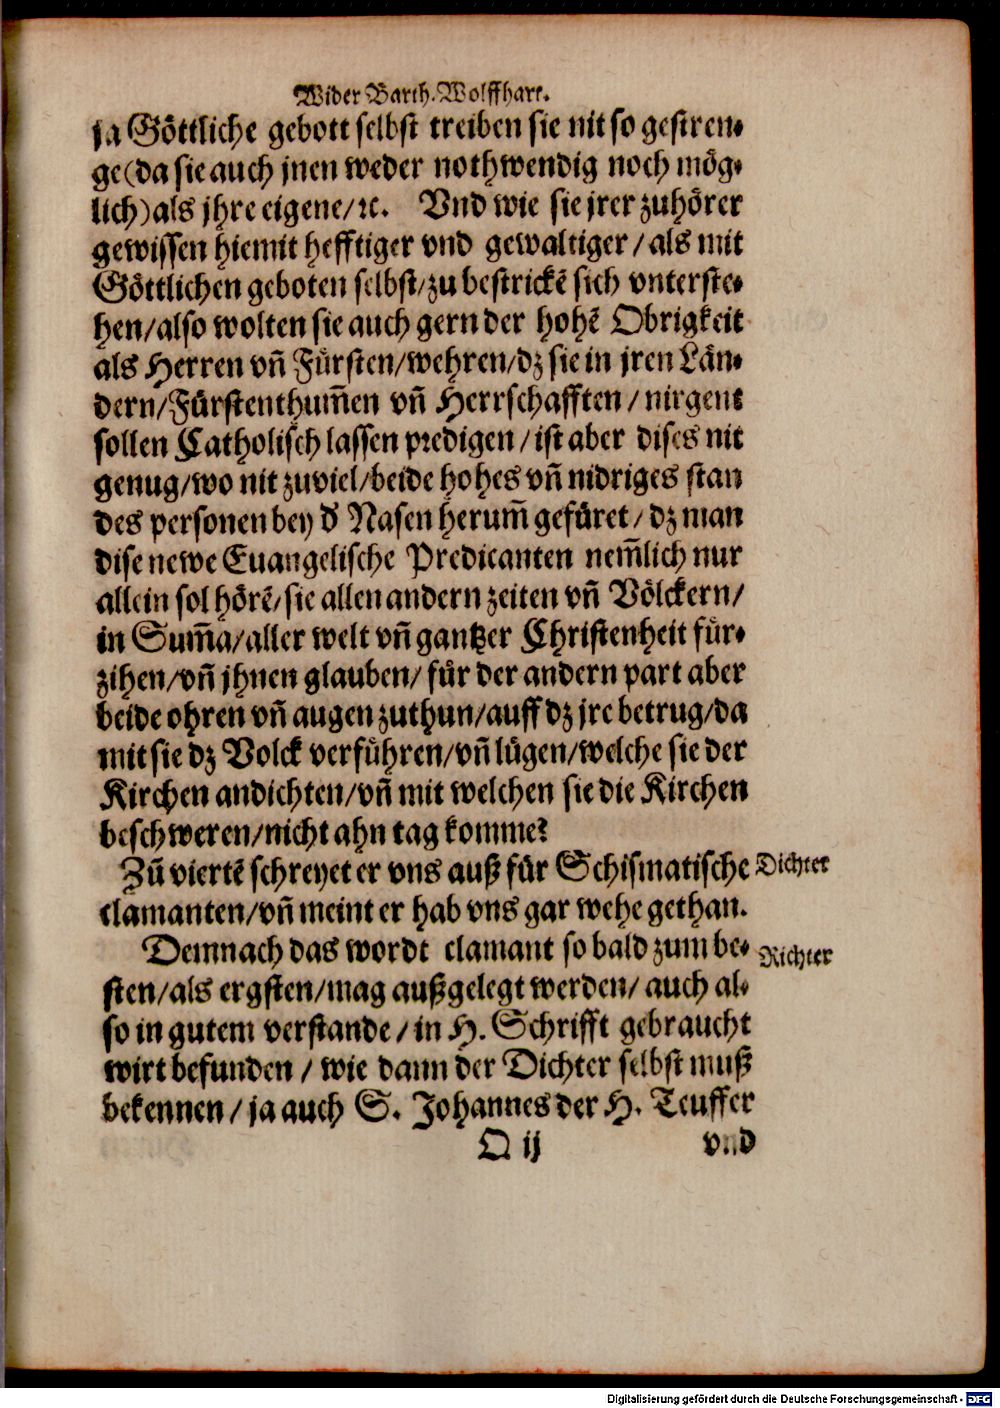 Wider Barth. Wolffhart.
ja Göttliche gebott selbst treiben sie nit so gestren⸗
ge (da sie auch jnen weder nothwendig noch mög⸗
lich) als jhre eigene/ ꝛc. Vnd wie sie jrer zuhörer
gewissen hiemit hefftiger vnd gewaltiger / als mit
Göttlichen geboten selbst/ zu bestrickẽ sich vnterste⸗
hen/ also wolten sie auch gern der hohẽ Obrigkeit
als Herren vñ Fürsten/ wehren/ dz sie in jren Län⸗
dern/ Fürstenthum̃en vñ Herrschafften / nirgent
sollen Catholisch lassen predigen / ist aber dises nit
genug/ wo nit zuviel/ beide hohes vñ nidriges stan
des personen bey d' Nasen herum̃ gefüret/ dz man
dise newe Euangelische Predicanten nem̃lich nur
allein sol hörẽ/ sie allen andern zeiten vñ Völckern/
in Sum̃a/ aller welt vñ gantzer Christenheit für⸗
zihen/ vñ jhnen glauben/ für der andern part aber
beide ohren vñ augen zuthun/ auff dz jre betrug/ da
mit sie dz Volck verführen/ vñ lügen/ welche sie der
Kirchen andichten/ vñ mit welchen sie die Kirchen
beschweren/ nicht ahn tag komme?
Zũ viertẽ schreyet er vns auß für Schismatische
Dichter
clamanten/ vñ meint er hab vns gar wehe gethan.
Demnach das wordt clamant so bald zum be⸗
Richter
sten/ als ergsten/ mag außgelegt werden/ auch al⸗
so in gutem verstande / in H. Schrifft gebraucht
wirt befunden / wie dann der Dichter selbst muß
bekennen / ja auch S. Johannes der H. Teuffer
O ij
vnd
Digitalisierung gefördert durch die Deutsche Forschungsgemeinschaft - DFG